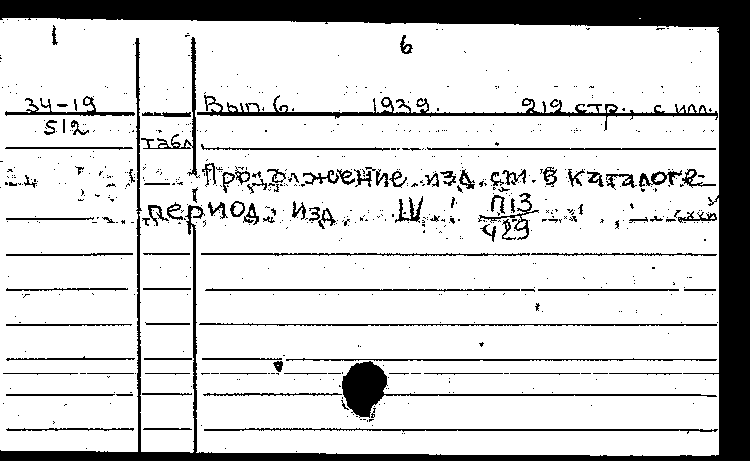 1 6
34-19 Вып. 6. 1939. 212 стр., с илл.,
512
табл.
Продолжение изд. см. в каталоге
период. изд. IV П13
429